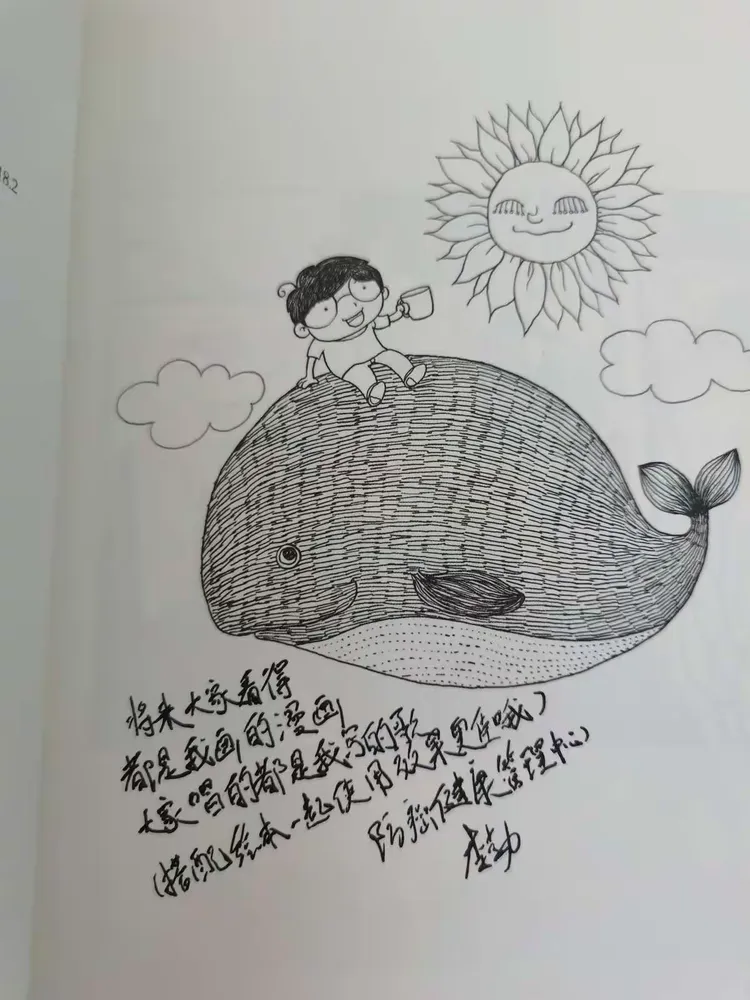 182
将来大家看得
都是我画的漫画
大家唱的都是我写的歌
(搭配绘本一起使用效果更佳哦)
防癌健康管理中心